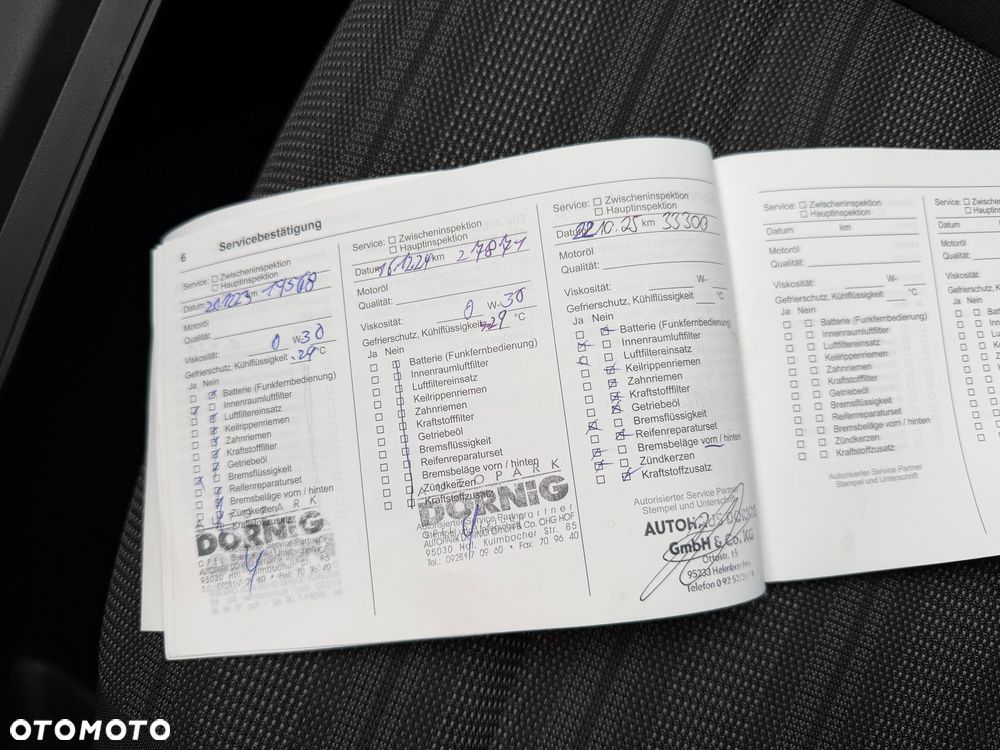 6
Servicebestätigung
Service: Zwischeninspektion
Hauptinspektion
Datum km
Motoröl
Qualität:
Viskosität: 0 W-30
Gefrierschutz, Kühlflüssigkeit -29 °C
Ja Nein
Batterie (Funkfernbedienung)
Innenraumluftfilter
Luftfiltereinsatz
Keilrippenriemen
Zahnriemen
Kraftstofffilter
Getriebeöl
Bremsflüssigkeit
Reifenreparaturset
Bremsbeläge vorn / hinten
Zündkerzen
Kraftstoffzusatz
DORNIG
Service: Zwischeninspektion
Hauptinspektion
Datum 16.12.24 km
Motoröl
Qualität:
Viskosität: 0 W-30
Gefrierschutz, Kühlflüssigkeit -29 °C
Ja Nein
Batterie (Funkfernbedienung)
Innenraumluftfilter
Luftfiltereinsatz
Keilrippenriemen
Zahnriemen
Kraftstofffilter
Getriebeöl
Bremsflüssigkeit
Reifenreparaturset
Bremsbeläge vorn / hinten
Zündkerzen
Kraftstoffzusatz
AUTOPARK
DORNIG
AUTOPARK DORNIG GmbH & Co. OHG HOF
95030 Hof, Kulmbacher Str. 85
Tel.: 09281 / 70 60 • Fax: 70 96 40
Service: Zwischeninspektion
Hauptinspektion
Datum 10.25 km 33300
Motoröl
Qualität:
Viskosität: W-
Gefrierschutz, Kühlflüssigkeit °C
Ja Nein
Batterie (Funkfernbedienung)
Innenraumluftfilter
Luftfiltereinsatz
Keilrippenriemen
Zahnriemen
Kraftstofffilter
Getriebeöl
Bremsflüssigkeit
Reifenreparaturset
Bremsbeläge vorn / hinten
Zündkerzen
Kraftstoffzusatz
Autorisierter Service Partner
Stempel und Unterschrift
AUTOHAUS
GmbH & Co. KG
Ottostr. 15
95233 Helmbrechts
Telefon 0 92 52
Service: Zwischeninspektion
Hauptinspektion
Datum km
Motoröl
Qualität:
Viskosität: W-
Gefrierschutz, Kühlflüssigkeit °C
Ja Nein
Batterie (Funkfernbedienung)
Innenraumluftfilter
Luftfiltereinsatz
Keilrippenriemen
Zahnriemen
Kraftstofffilter
Getriebeöl
Bremsflüssigkeit
Reifenreparaturset
Bremsbeläge vorn / hinten
Zündkerzen
Kraftstoffzusatz
Autorisierter Service Partner
Stempel und Unterschrift
Service:
Datum
Motoröl
Qualität:
Viskosität:
Gefrierschutz
Ja Nein
OTOMOTO